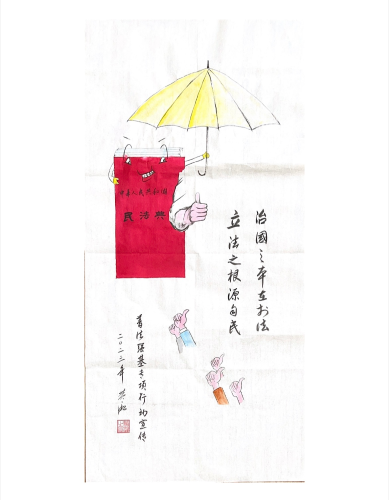 中华人民共和国
民法典
治國之本在於法
立法之根源自民
普法强基专项行动宣传
二〇二三年